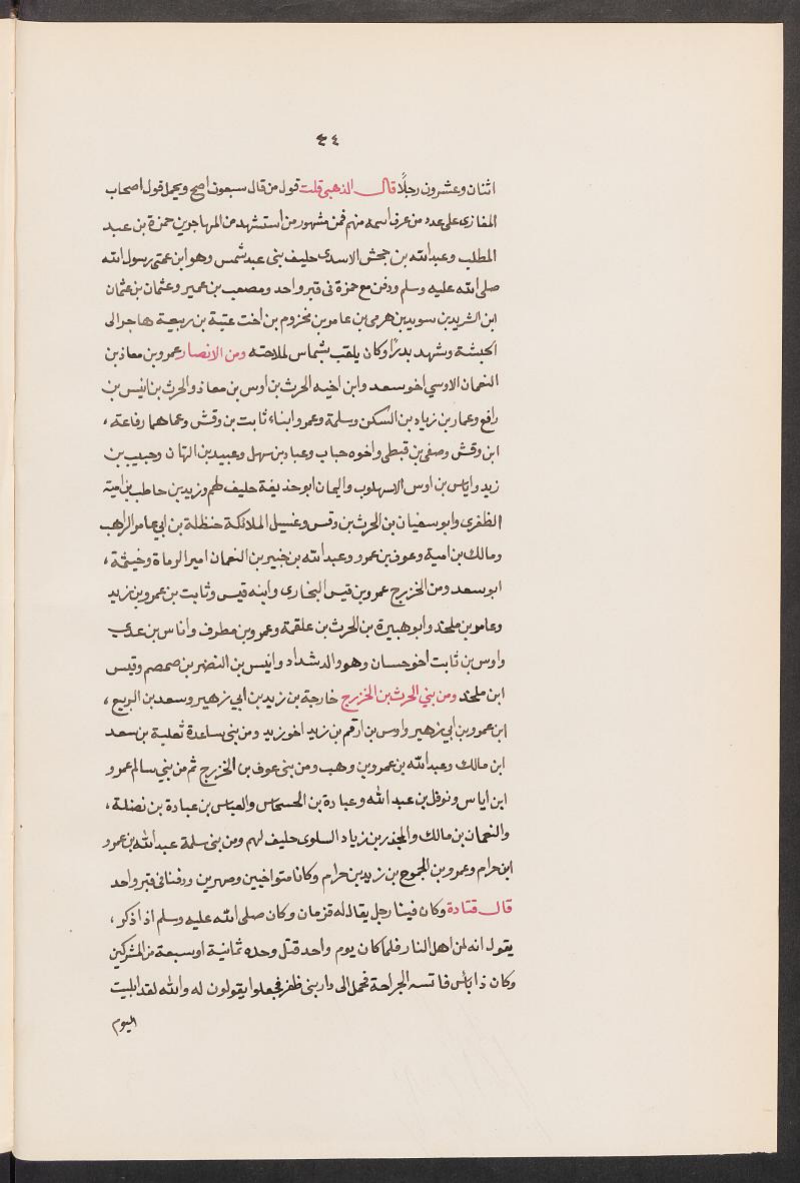 ٤٤
اثنان وعشرون رجلًا قال الذهبي قلت قول من قال سبعون اصح ويحمل قول اصحاب
المغازى على عدد من عرف اسمه منهم فمن مشهور من استشهد من المهاجرين حمزة بن عبد
المطلب وعبد الله بن جحش الاسدى حليف بنى عبد شمس وهو ابن عمتى رسول الله
صلى الله عليه وسلم ودفن مع حمزة فى قبر واحد ومصعب بن عمير وعثمان بن عثمان
ابن الشريد بن سويد بن هرمى بن عامر بن مخزوم بن اخت عتبة بن ربيعة هاجر الى
الحبشة وشهد بدرًا وكان يلقب بشماس لملاحته ومن الانصار عمرو بن معاذ بن
النعمان الاوسى اخو سعد وابن اخيه الحرث بن اوس بن معاذ والحرث بن انيس بن
رافع وعمار بن زياد بن السكن وسلمة وعمرو ابناء ثابت بن وقش وعماهما رفاعته ،
ابن وقش وصفى بن قبطى واخوه حباب وعباد بن سهل وعبيد بن التهان وحبيب بن
زيد واياس بن اوس الاسهلوب واليمان ابو حذيفة حليف لهم وزيد بن حاطب بن امية
الظفرى وابو سفيان بن الحرث بن وقس وغسيل الملائكة حنظلة بن ابى عامر الراهب
ومالك بن امية وعوف بن عمرو وعبد الله بن جبير بن النعمان امير الرماة وخيثمة ،
ابو سعد ومن الخزرج عمرو بن قيس البخارى وابنه قيس وثابت بن عمرو بن زيد
وعامر بن ملخد وابو هبيرة بن الحرث بن علقمة وعمرو بن مطرف واناس بن عدى
واوس بن ثابت اخو حسان وهو والد شداد وانيس بن النضر بن صمصم وقيس
ابن ملخد ومن بني الحرث بن الخزرج خارجة بن زيد بن ابي زهير وسعد بن الربيع ،
ابن عمرو بن ابي زهير واوس بن ارقم بن زيد اخو زيد ومن بنى ساعدة ثعلبة بن سعد
ابن مالك وعبد الله بن عمرو بن وهب ومن بنى عوف بن الخزرج ثم من بني سالم عمرو
ابن اياس ونوفل بن عبد الله وعبادة بن الحسحاس والعباس بن عبادة بن نضلة ،
والنعمان بن مالك والمجذر بن زياد السلوى حليف لهم ومن بنى سلمة عبد الله بن عمرو
ابن حرام وعمرو بن الجموح بن زيد بن حرام وكانا متواخيين وصهرين ودفنا فى قبر واحد
قال قتادة وكان فينا رجل يقال له قزمان وكان صلى الله عليه وسلم اذا ذكر ،
يقول انه لمن اهل النار فلما كان يوم واحد قتل وحده ثمانية او سبعة من المشركين
وكان ذا باس فاتسه الجراحة فحمل الى دار بنى ظفر فجعلوا يقولون له والله لقد ابليت
اليوم